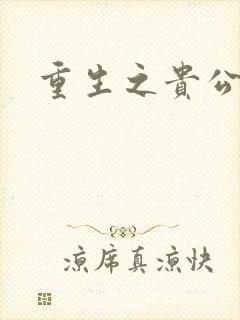 重生之貴公
凉席真凉快